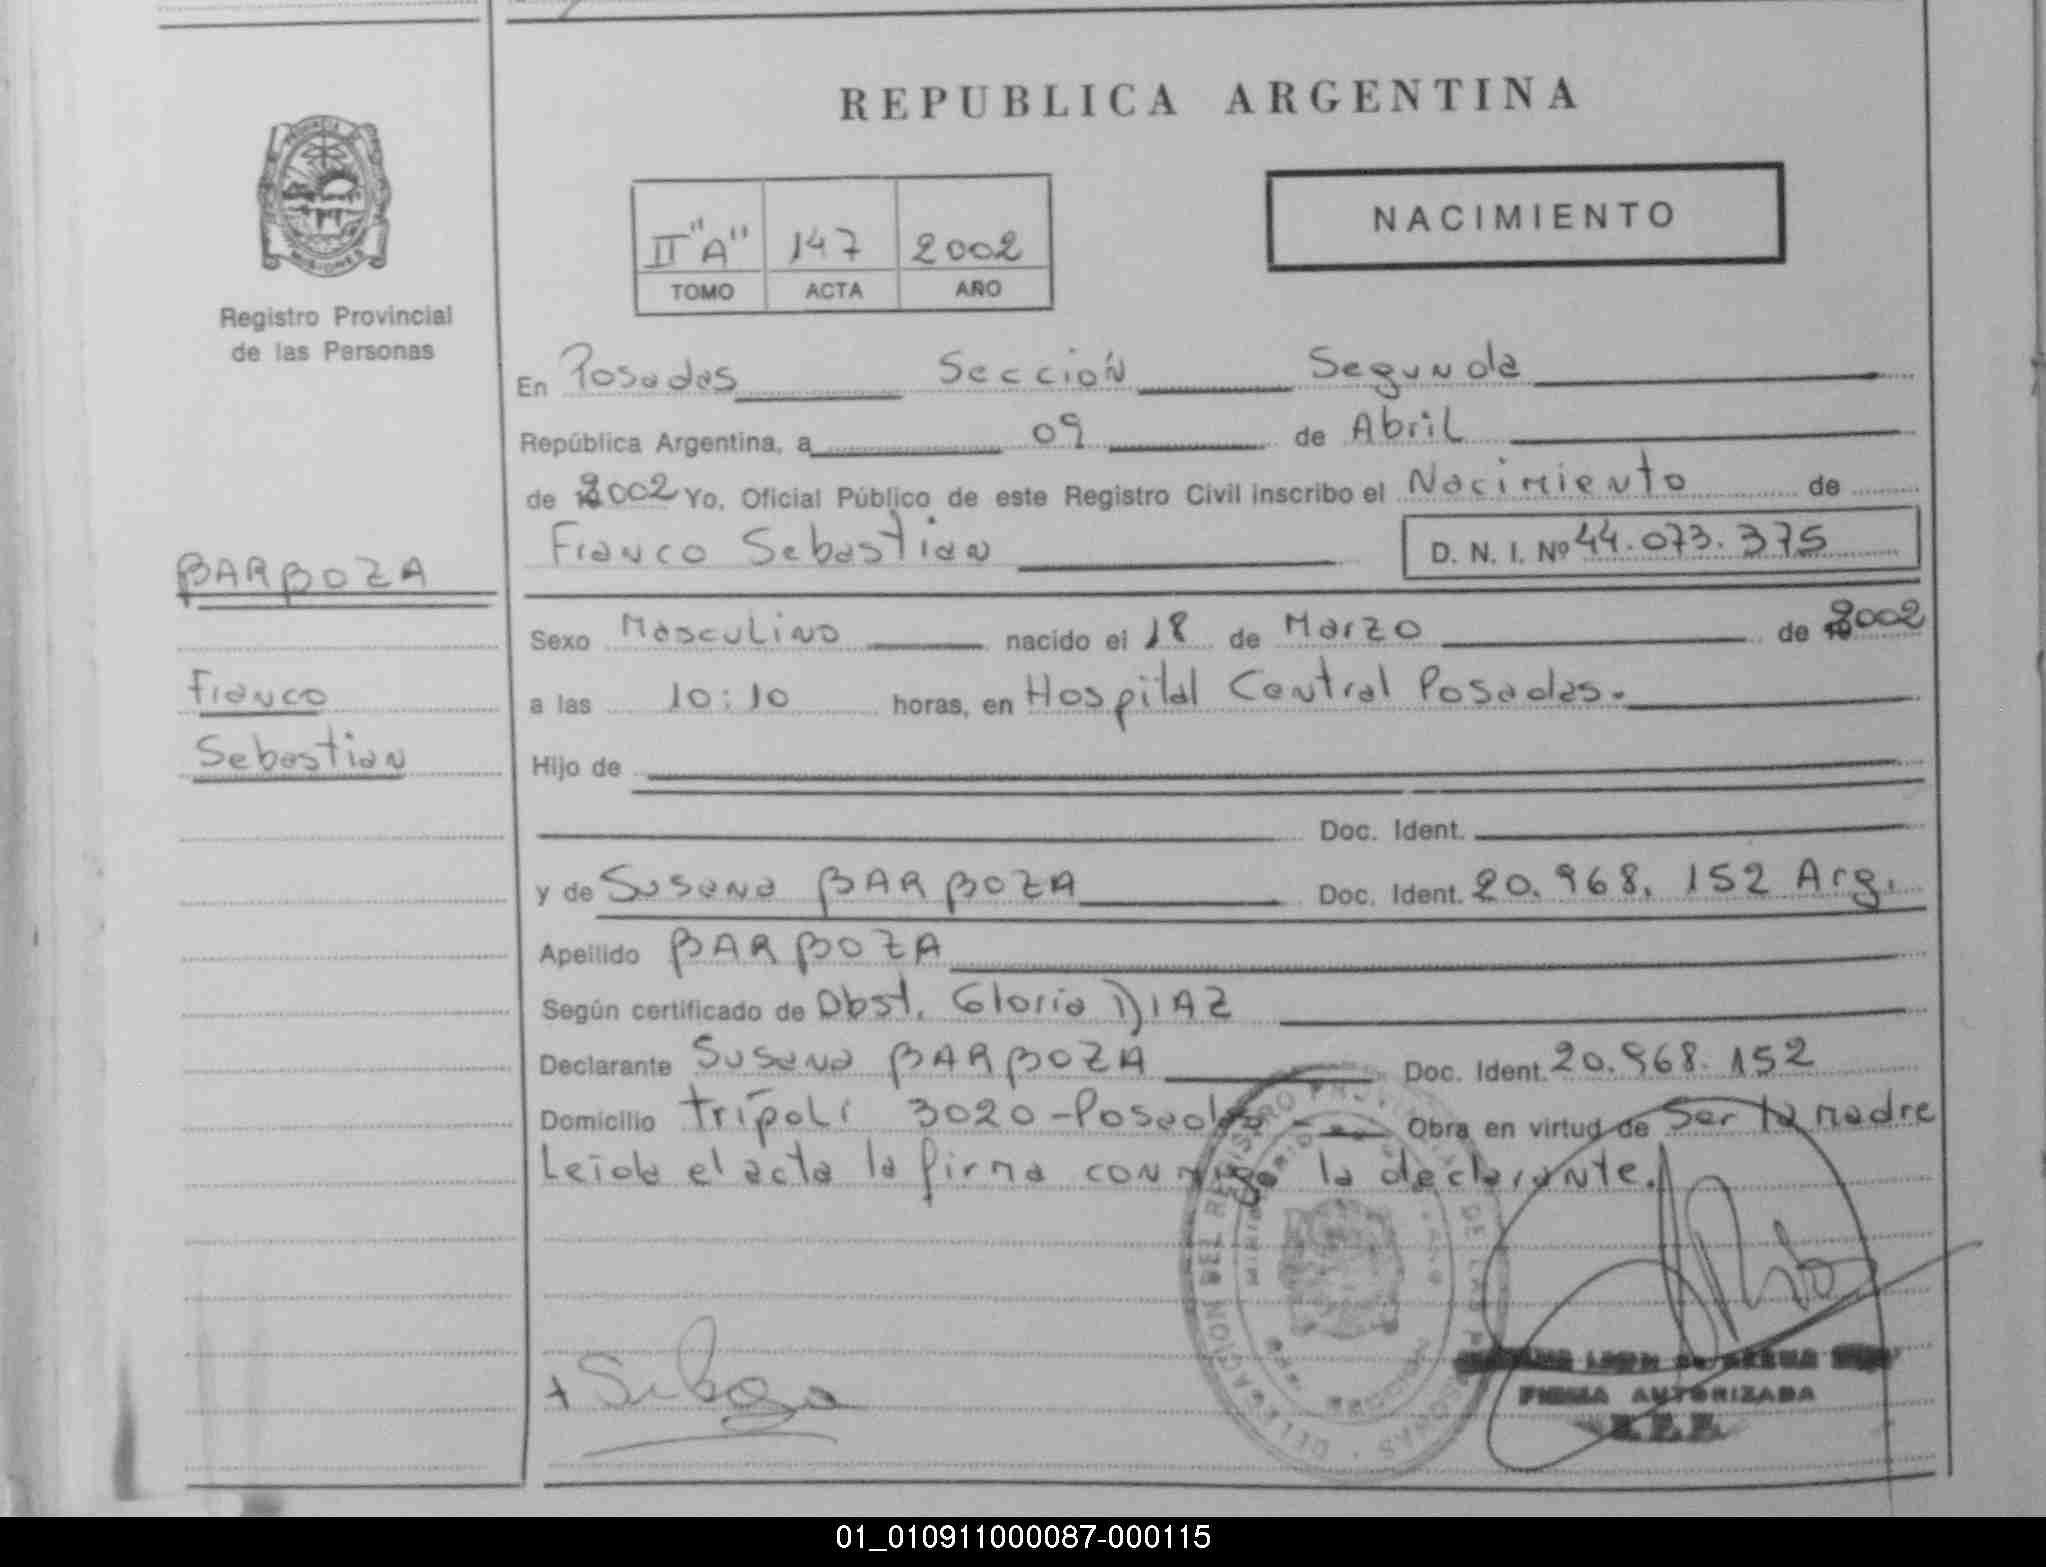 REPUBLICA ARGENTINA
PROVINCIA DE
MISIONES
Registro Provincial
de las Personas
II "A" 147 2002
TOMO ACTA AÑO
NACIMIENTO
En Posadas Sección Segunda
República Argentina, a 09 de Abril
de 2002 Yo, Oficial Público de este Registro Civil inscribo el Nacimiento de
Franco Sebastian D. N. I. Nº 44.073.375
BARBOZA
Franco
Sebastian
Sexo Masculino nacido el 18 de Marzo de 2002
a las 10:10 horas, en Hospital Central Posadas.
Hijo de
Doc. Ident.
y de Susana BARBOZA Doc. Ident. 20.968.152 Arg.
Apellido BARBOZA
Según certificado de Obst. Gloria DIAZ
Declarante Susana BARBOZA Doc. Ident. 20.968.152
Domicilio Trípoli 3020-Posadas Obra en virtud de Ser la madre
Leída el acta la firma conmigo la declarante.
DELEGACION DEL REGISTRO PROVINCIAL DE LAS PERSONAS
MISIONES
FIRMA AUTORIZADA
01_010911000087-000115